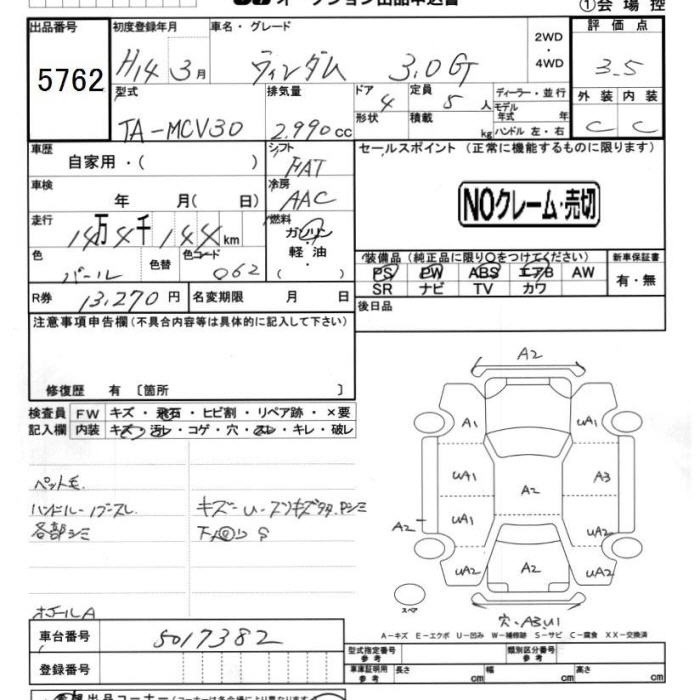 オークション出品申込書
①会場控
出品番号 初度登録年月 車名・グレード 2WD・4WD 評価点
5762 H14 3月 ウィンダム 3.0G 3.5
型式 排気量 ドア 定員 ディーラー・並行 外装 内装
TA-MCV30 2,990cc 4 5人 モデル年式 年 C C
形状 積載 kg ハンドル 左・右
車歴 シフト セールスポイント(正常に機能するものに限ります)
自家用・( ) FAT
車検 冷房 NOクレーム・売切
年 月( 日) AAC
走行 燃料
14万4千144km ガソリン
色 色替 色コード 軽油
パール 062 ( )
装備品(純正品に限り○をつけてください) 新車保証書
PS PW ABS エアB AW 有・無
SR ナビ TV カワ
R券 13,270円 名変期限 月 日 後日品
注意事項申告欄(不具合内容等は具体的に記入して下さい)
修復歴 有〔箇所 〕
検査員 FW キズ・飛石・ヒビ割・リペア跡・×要
記入欄 内装 キズ・汚レ・コゲ・穴・スレ・キレ・破レ
ペット毛
ハンドル-ノブスレ キズ-U-
各部シミ 下
A2
A1 UA1
UA1 A3
A2
UA1 UA2
A2
UA2 A2 UA2
スペア
穴・A3U1
A-キズ E-エクボ U-凹み W-補修跡 S-サビ C-腐食 XX-交換済
車台番号 5017382
型式指定番号 参考 類別区分番号 参考
登録番号 車庫証明用 参考 長さ cm 幅 cm 高さ cm
出品コーナー